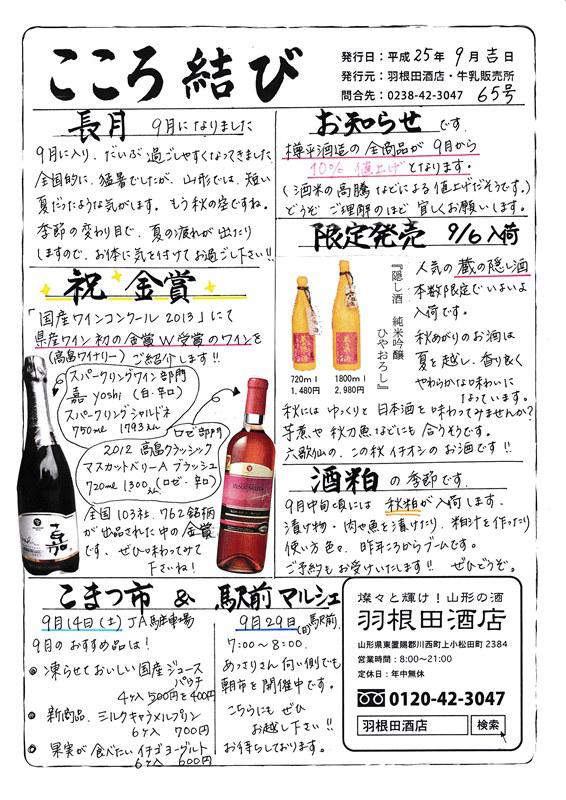 こころ結び
発行日：平成25年 9月吉日
発行元：羽根田酒店・牛乳販売所
問合先：0238-42-3047 65号
長月 9月になりました
9月に入り、だいぶ過ごしやすくなってきました。
全国的に、猛暑でしたが、山形では、短い
夏だったような気がします。もう秋の空ですね。
季節の変わり目で、夏の疲れが出たり
しますので、お体に気を付けてお過ごし下さい!!
お知らせです。
樽平酒造の全商品が9月から
10%値上げとなります。
(酒米の高騰などによる値上げだそうです。)
どうぞご理解のほど宜しくお願いします。
祝 金賞
「国産ワインコンクール2013」にて
県産ワイン初の金賞W受賞のワインを
(高畠ワイナリー) ご紹介します!!
スパークリングワイン部門
嘉 yoshi (白・辛口)
スパークリングシャルドネ
750ml 1793えん
ロゼ部門
2012 高畠クラシック
マスカットベリーA ブラッシュ
720ml 1300えん (ロゼ・辛口)
全国103社、762銘柄
が出品された中の金賞
です、ぜひ味わってみて
下さいね!
嘉
限定発売 9/6入荷
『隠し酒 純米吟醸
ひやおろし』
720ml
1,480円
1800ml
2,980円
人気の蔵の隠し酒
本数限定でいよいよ
入荷です。
秋あがりのお酒は
夏を越し、香り良く
やわらかな味わいに
なっています。
秋にはゆっくりと日本酒を味わってみませんか?
芋煮や秋刀魚などにも合うそうです。
六歌仙の、この秋イチオシのお酒です!!
酒粕の季節です。
9月中旬頃には秋粕が入荷します。
漬け物・肉や魚を漬けたり、粕汁を作ったり
使い方色々、昨年ころからブームです。
ご予約もお受けいたします!! ぜひどうぞ。
こまつ市 & 駅前マルシェ
9月14日(土) JA駐車場
9月のおすすめ品は!
凍らせておいしい国産ジュース
パウチ
4ヶ入 500円を400円
新商品、ミルクキャラメルプリン
6ヶ入 700円
果実が食べたいイチゴヨーグルト
6ヶ入 600円
9月29日(日)駅前、
7:00〜8:00.
あっさりさん向い側でも
朝市を開催中です。
こちらにもぜひ
お越し下さい!!
お待ちしております。
燦々と輝け！山形の酒
羽根田酒店
山形県東置賜郡川西町上小松田町2384
営業時間：8:00〜21:00
定休日：年中無休
0120-42-3047
羽根田酒店 検索